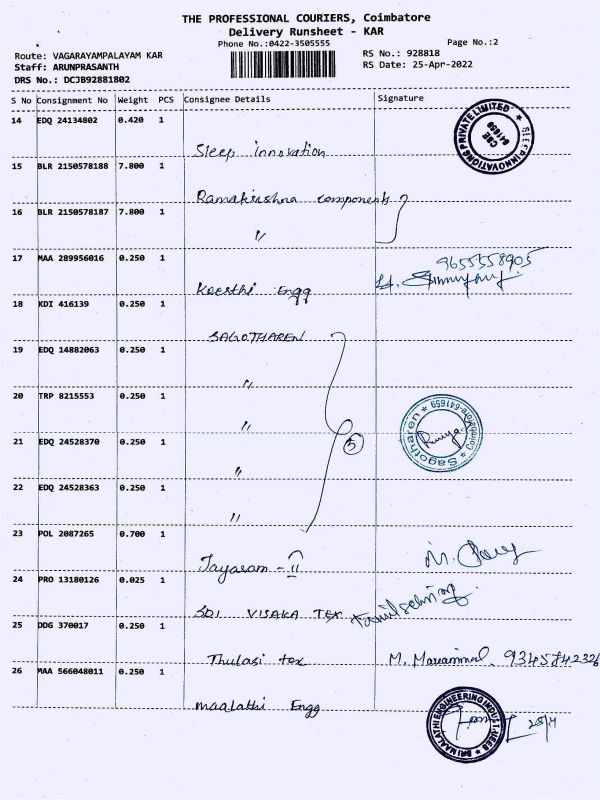 THE PROFESSIONAL COURIERS, Coimbatore
Delivery Runsheet - KAR
Phone No.:0422-3505555
Page No.:2
Route: VAGARAYAMPALAYAM KAR
RS No.: 928818
Staff: ARUNPRASANTH
RS Date: 25-Apr-2022
DRS No.: DCJB92881802
S No Consignment No Weight PCS Consignee Details Signature
14 EDQ 24134802 0.420 1
SLEEPINNOVATIONS PRIVATE LIMITED
CBE
641659
Sleep innovation
15 BLR 2150578188 7.800 1
Ramakrishna components
16 BLR 2150578187 7.800 1
"
17 MAA 289956016 0.250 1
9655558905
Keerthi Engg
18 KDI 416139 0.250 1
SAGOTHAREN
19 EDQ 14882063 0.250 1
"
20 TRP 8215553 0.250 1
"
Sagotharen * Coimbatore-641659 *
21 EDQ 24528370 0.250 1
5
"
22 EDQ 24528363 0.250 1
"
23 POL 2087265 0.700 1
Jayaram - 11
24 PRO 13180126 0.025 1
SRI VISAKA Tex
25 DDG 370017 0.250 1
Thulasi tex M. Mariammal.
26 MAA 566048011 0.250 1
maalathi Engg
SRI MAALATHI ENGINEERING INDUSTRIES
25/4